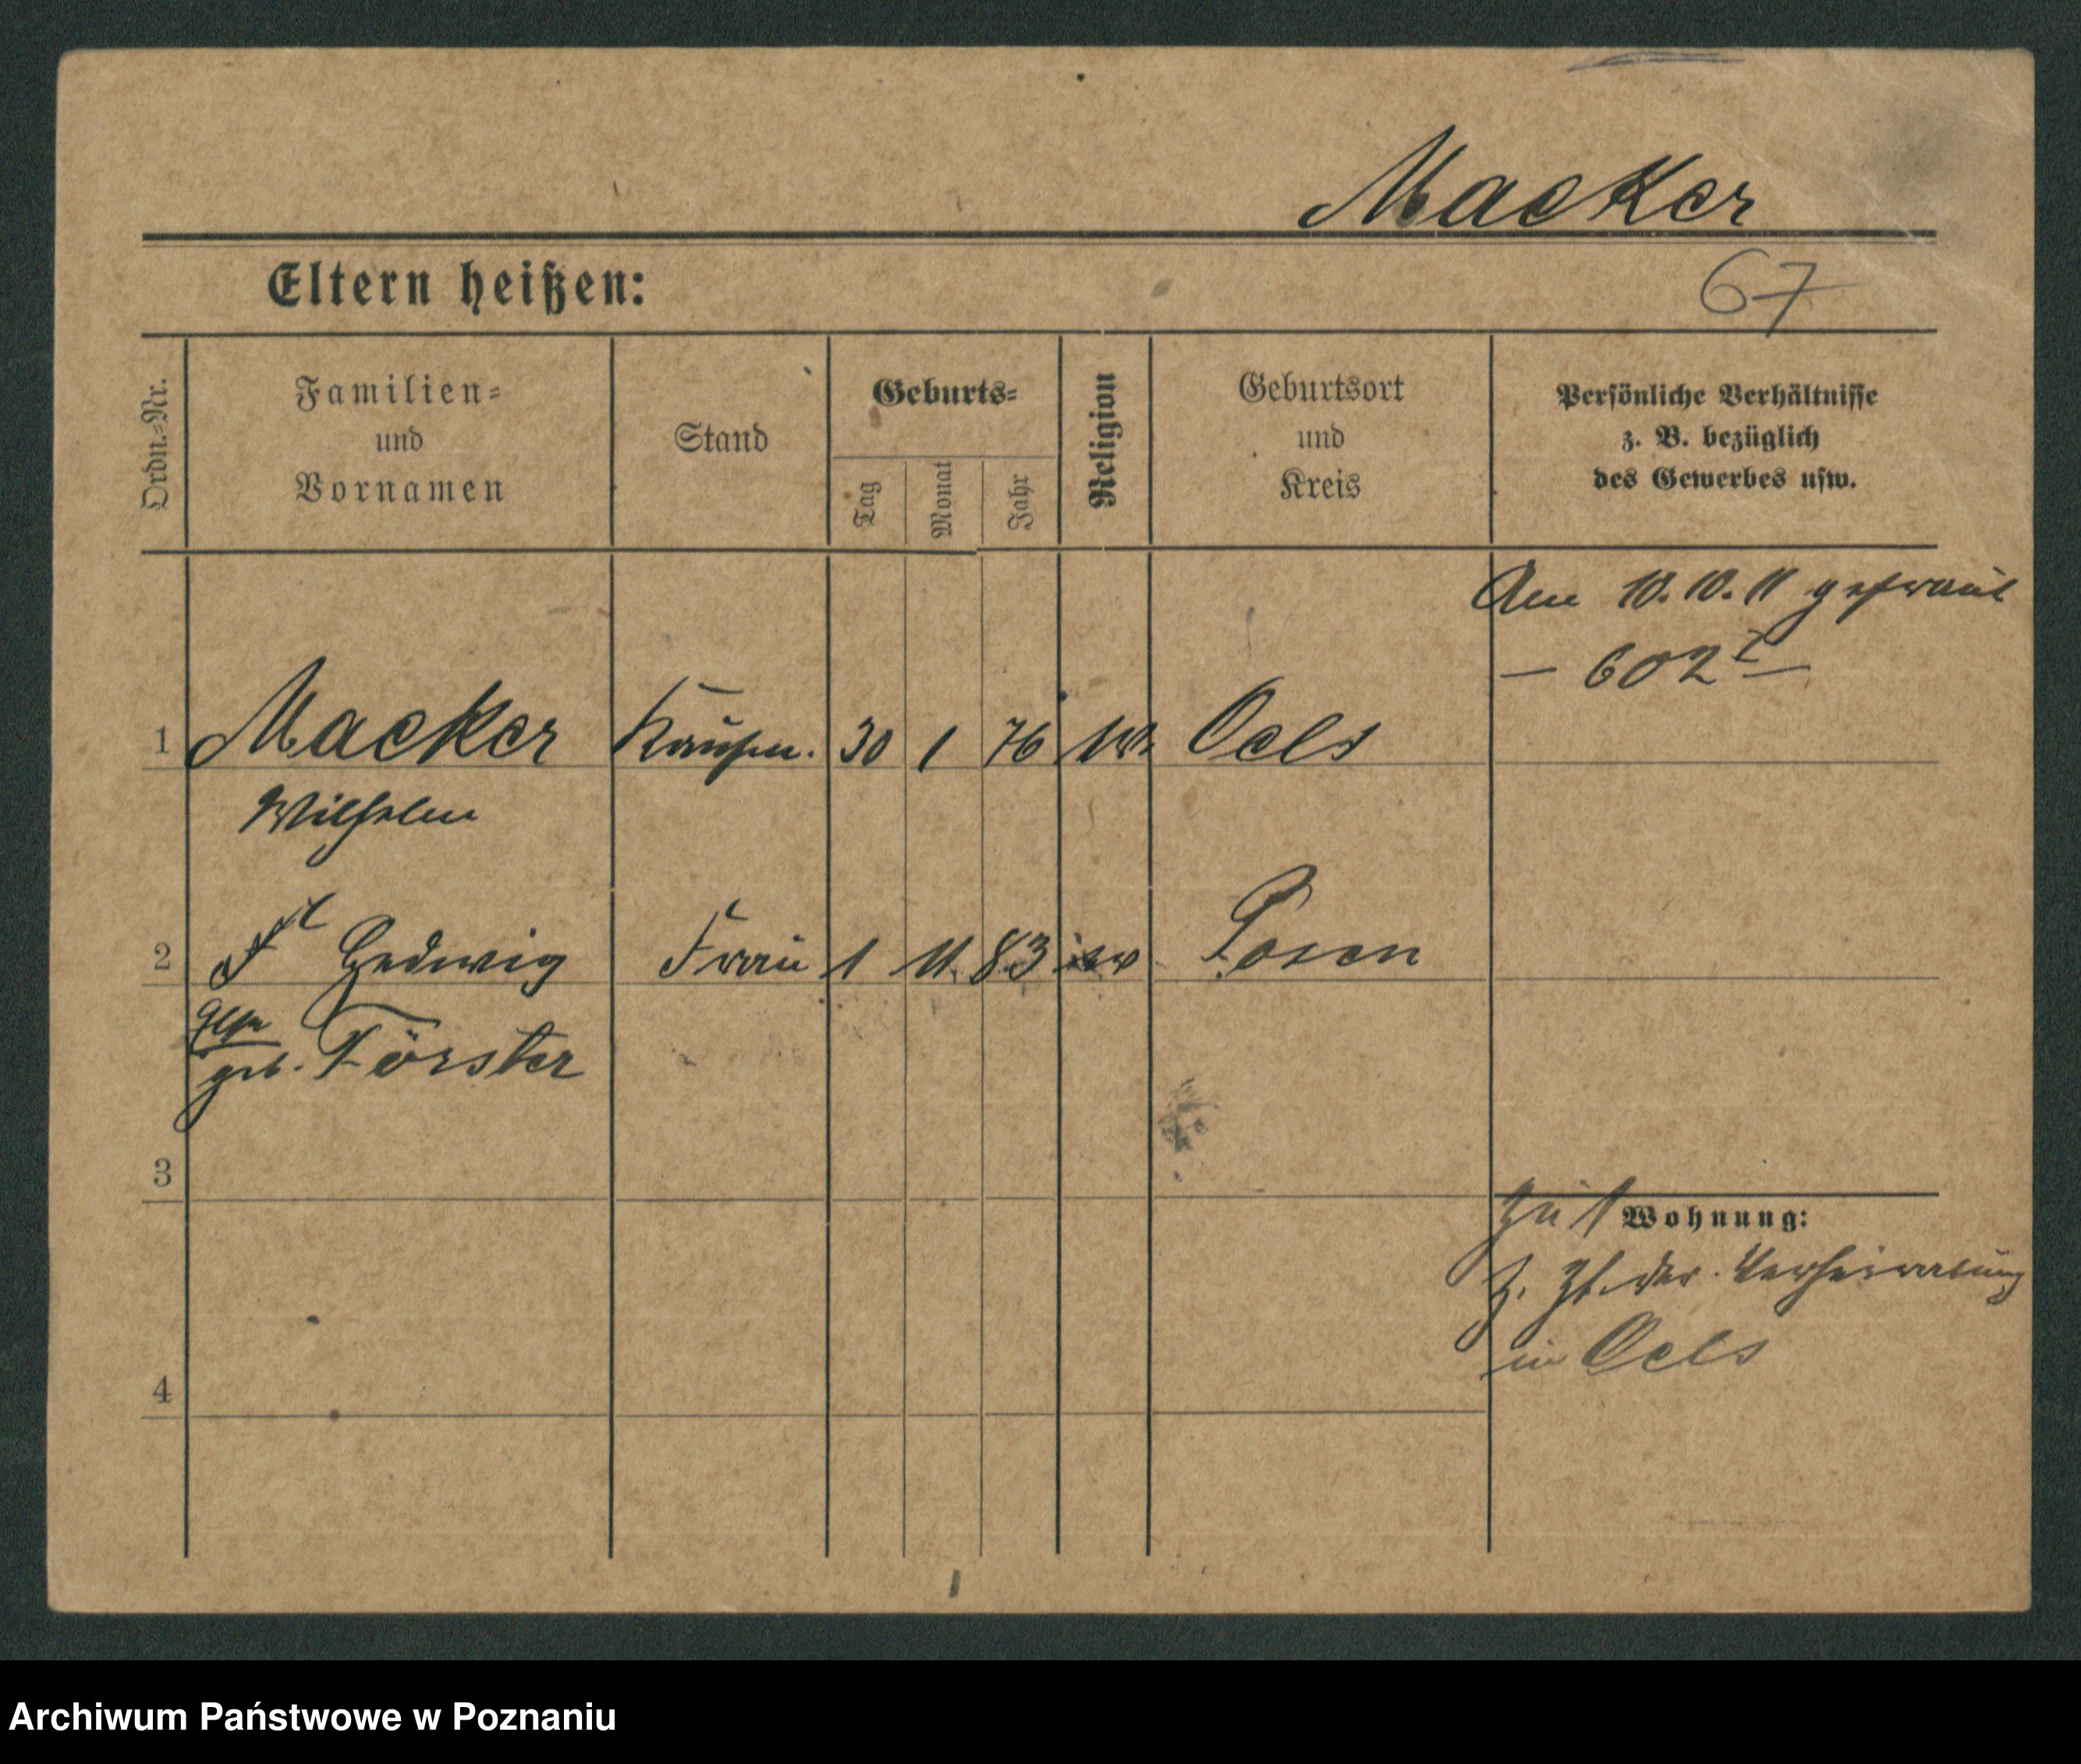 Macker
Eltern heißen:
67
Ordn.-Nr.
Familien- und Vornamen
Stand
Geburts-
Tag
Monat
Jahr
Religion
Geburtsort und Kreis
Persönliche Verhältnisse
z. B. bezüglich
des Gewerbes usw.
Am 10.10.11 getraut
— 602 —
1 Macker Kaufm. 30 1 76 Oels
Wilhelm
2 Hedwig Frau 1 11 83 Posen
geb. Förster
3
zu 1 Wohnung:
z. Zt. der Verheiratung
in Oels
4
Archiwum Państwowe w Poznaniu